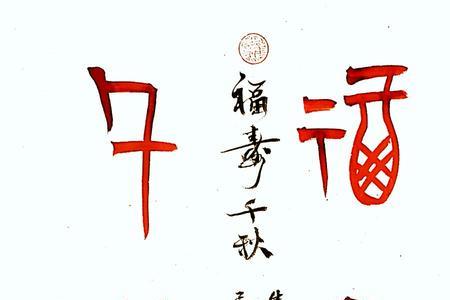 福
福寿千秋
千